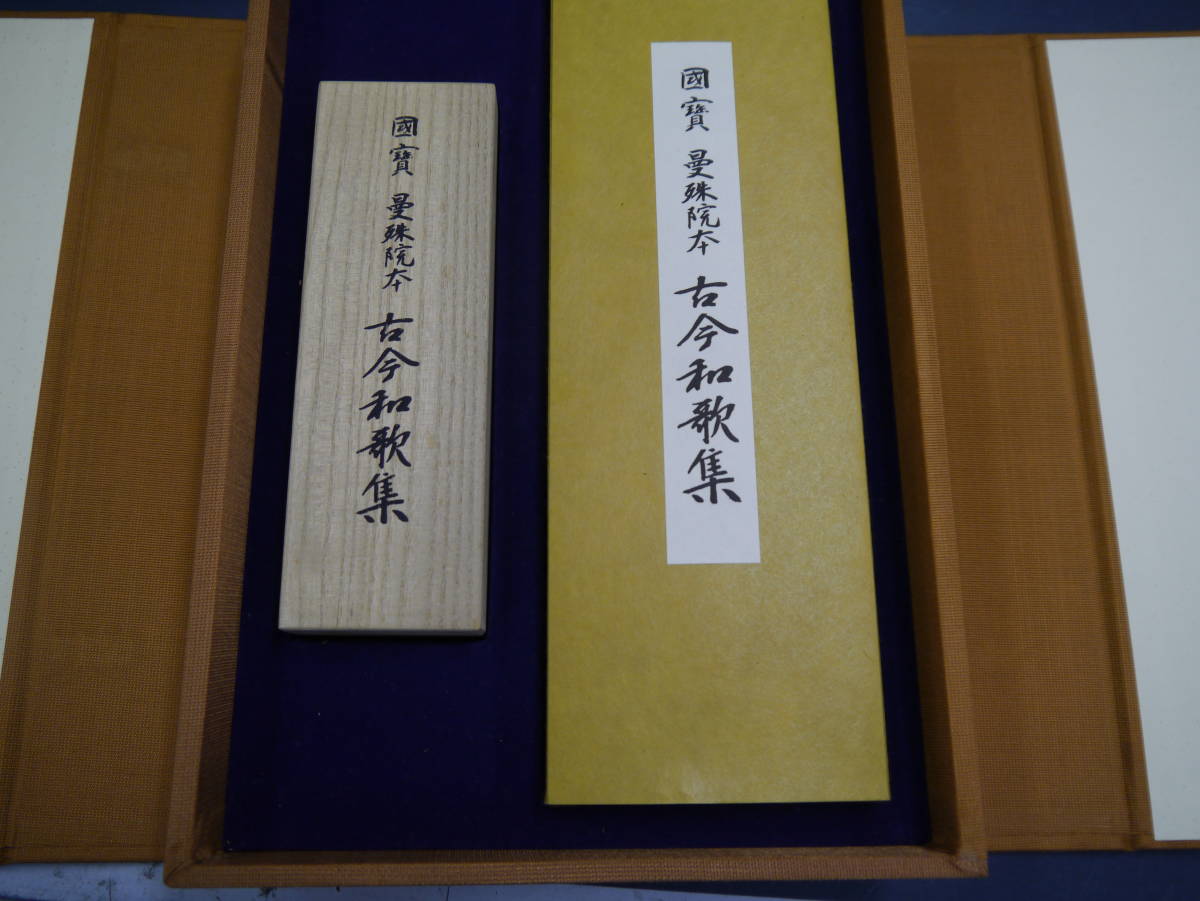 國寶 曼殊院本 古今和歌集
國寶 曼殊院本 古今和歌集